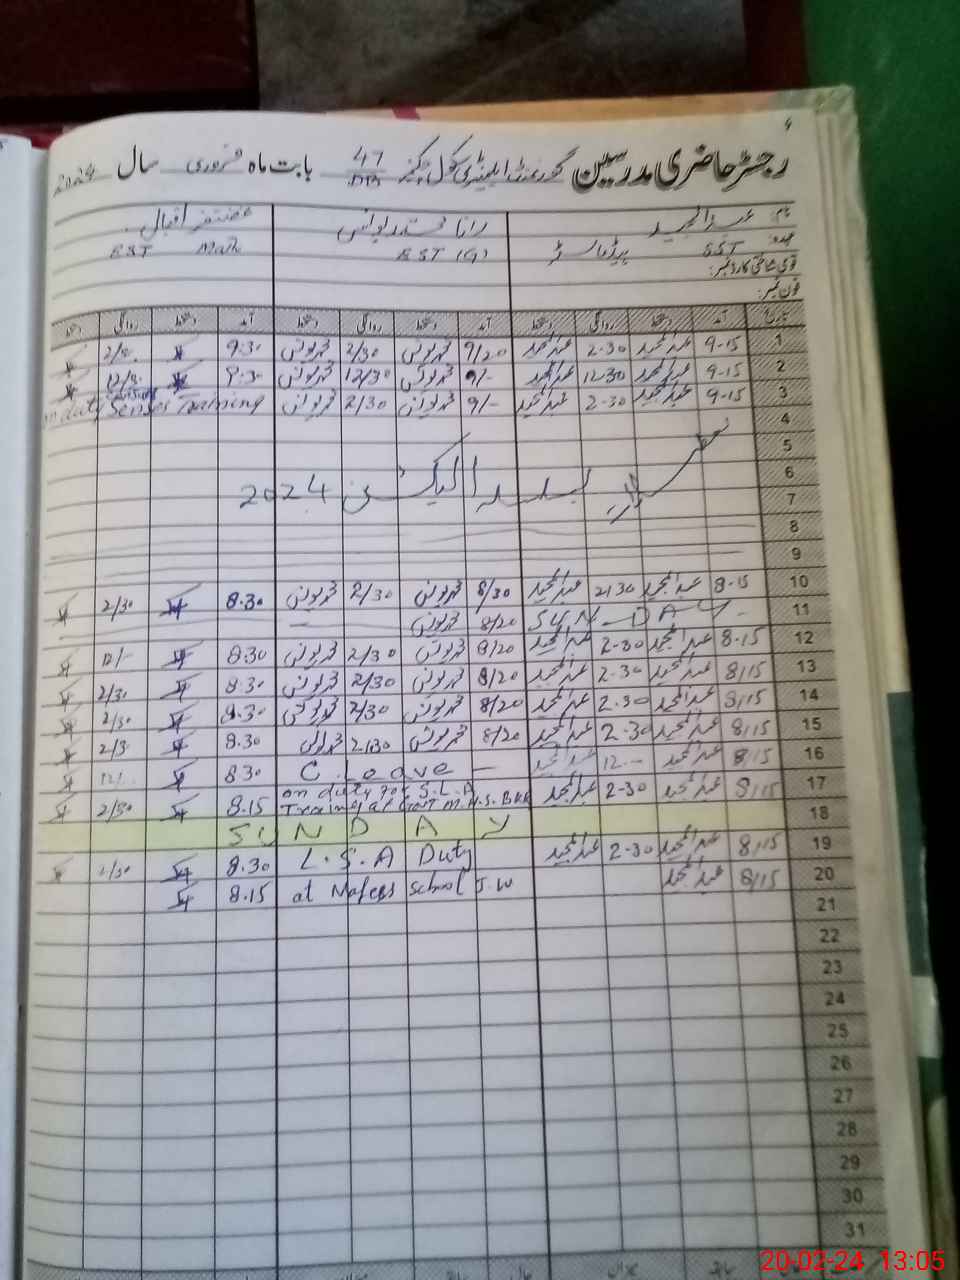 رجسٹر حاضری مدرسین گورنمنٹ ایلیمنٹری سکول 47 بابت ماہ فروری سال 2024
نام: عبدالمجید رانا محمد یونس غضنفر اقبال
عہدہ: SST ہیڈماسٹر EST (G) EST Math
قومی شناختی کارڈ نمبر:
فون نمبر:
تاریخ آمد دستخط روانگی دستخط آمد دستخط روانگی دستخط آمد دستخط روانگی دستخط
1 9-15 عبدالمجید 2-30 عبدالمجید 9/20 محمد یونس 2/30 محمد یونس 9.30
2 9-15 عبدالمجید 12-30 عبدالمجید 9/- محمد یونس 12/30 محمد یونس 9.30
3 9-15 عبدالمجید 2-30 عبدالمجید 9/- محمد یونس 2/30 محمد یونس on duty Training
4
5
6
7 بسلسلہ الیکشن 2024
8
9
10 8-15 عبدالمجید 2/30 عبدالمجید 8/30 محمد یونس 2/30 محمد یونس 8.30 2/30
11 SUNDAY 8/20 محمد یونس
12 8-15 عبدالمجید 2-30 عبدالمجید 8/20 محمد یونس 2/30 محمد یونس 8.30 12/-
13 8/15 عبدالمجید 2-30 عبدالمجید 8/20 محمد یونس 2/30 محمد یونس 8.30 2/30
14 8/15 عبدالمجید 2-30 عبدالمجید 8/20 محمد یونس 2/30 محمد یونس 8.30 2/30
15 8/15 عبدالمجید 2-30 عبدالمجید 8/20 محمد یونس 2/30 محمد یونس 8.30 2/3
16 8/15 عبدالمجید 12-- عبدالمجید C. Leave 8.30 12/-
17 8/15 عبدالمجید 2-30 عبدالمجید on duty for S.L.A Training at Govt M.H.S. BKR 8.15 2/30
18 SUNDAY
19 8/15 عبدالمجید 2-30 عبدالمجید L.S.A Duty 8.30
20 8/15 عبدالمجید at school J.W 8.15
21
22
23
24
25
26
27
28
29
30
31
20-02-24 13:05